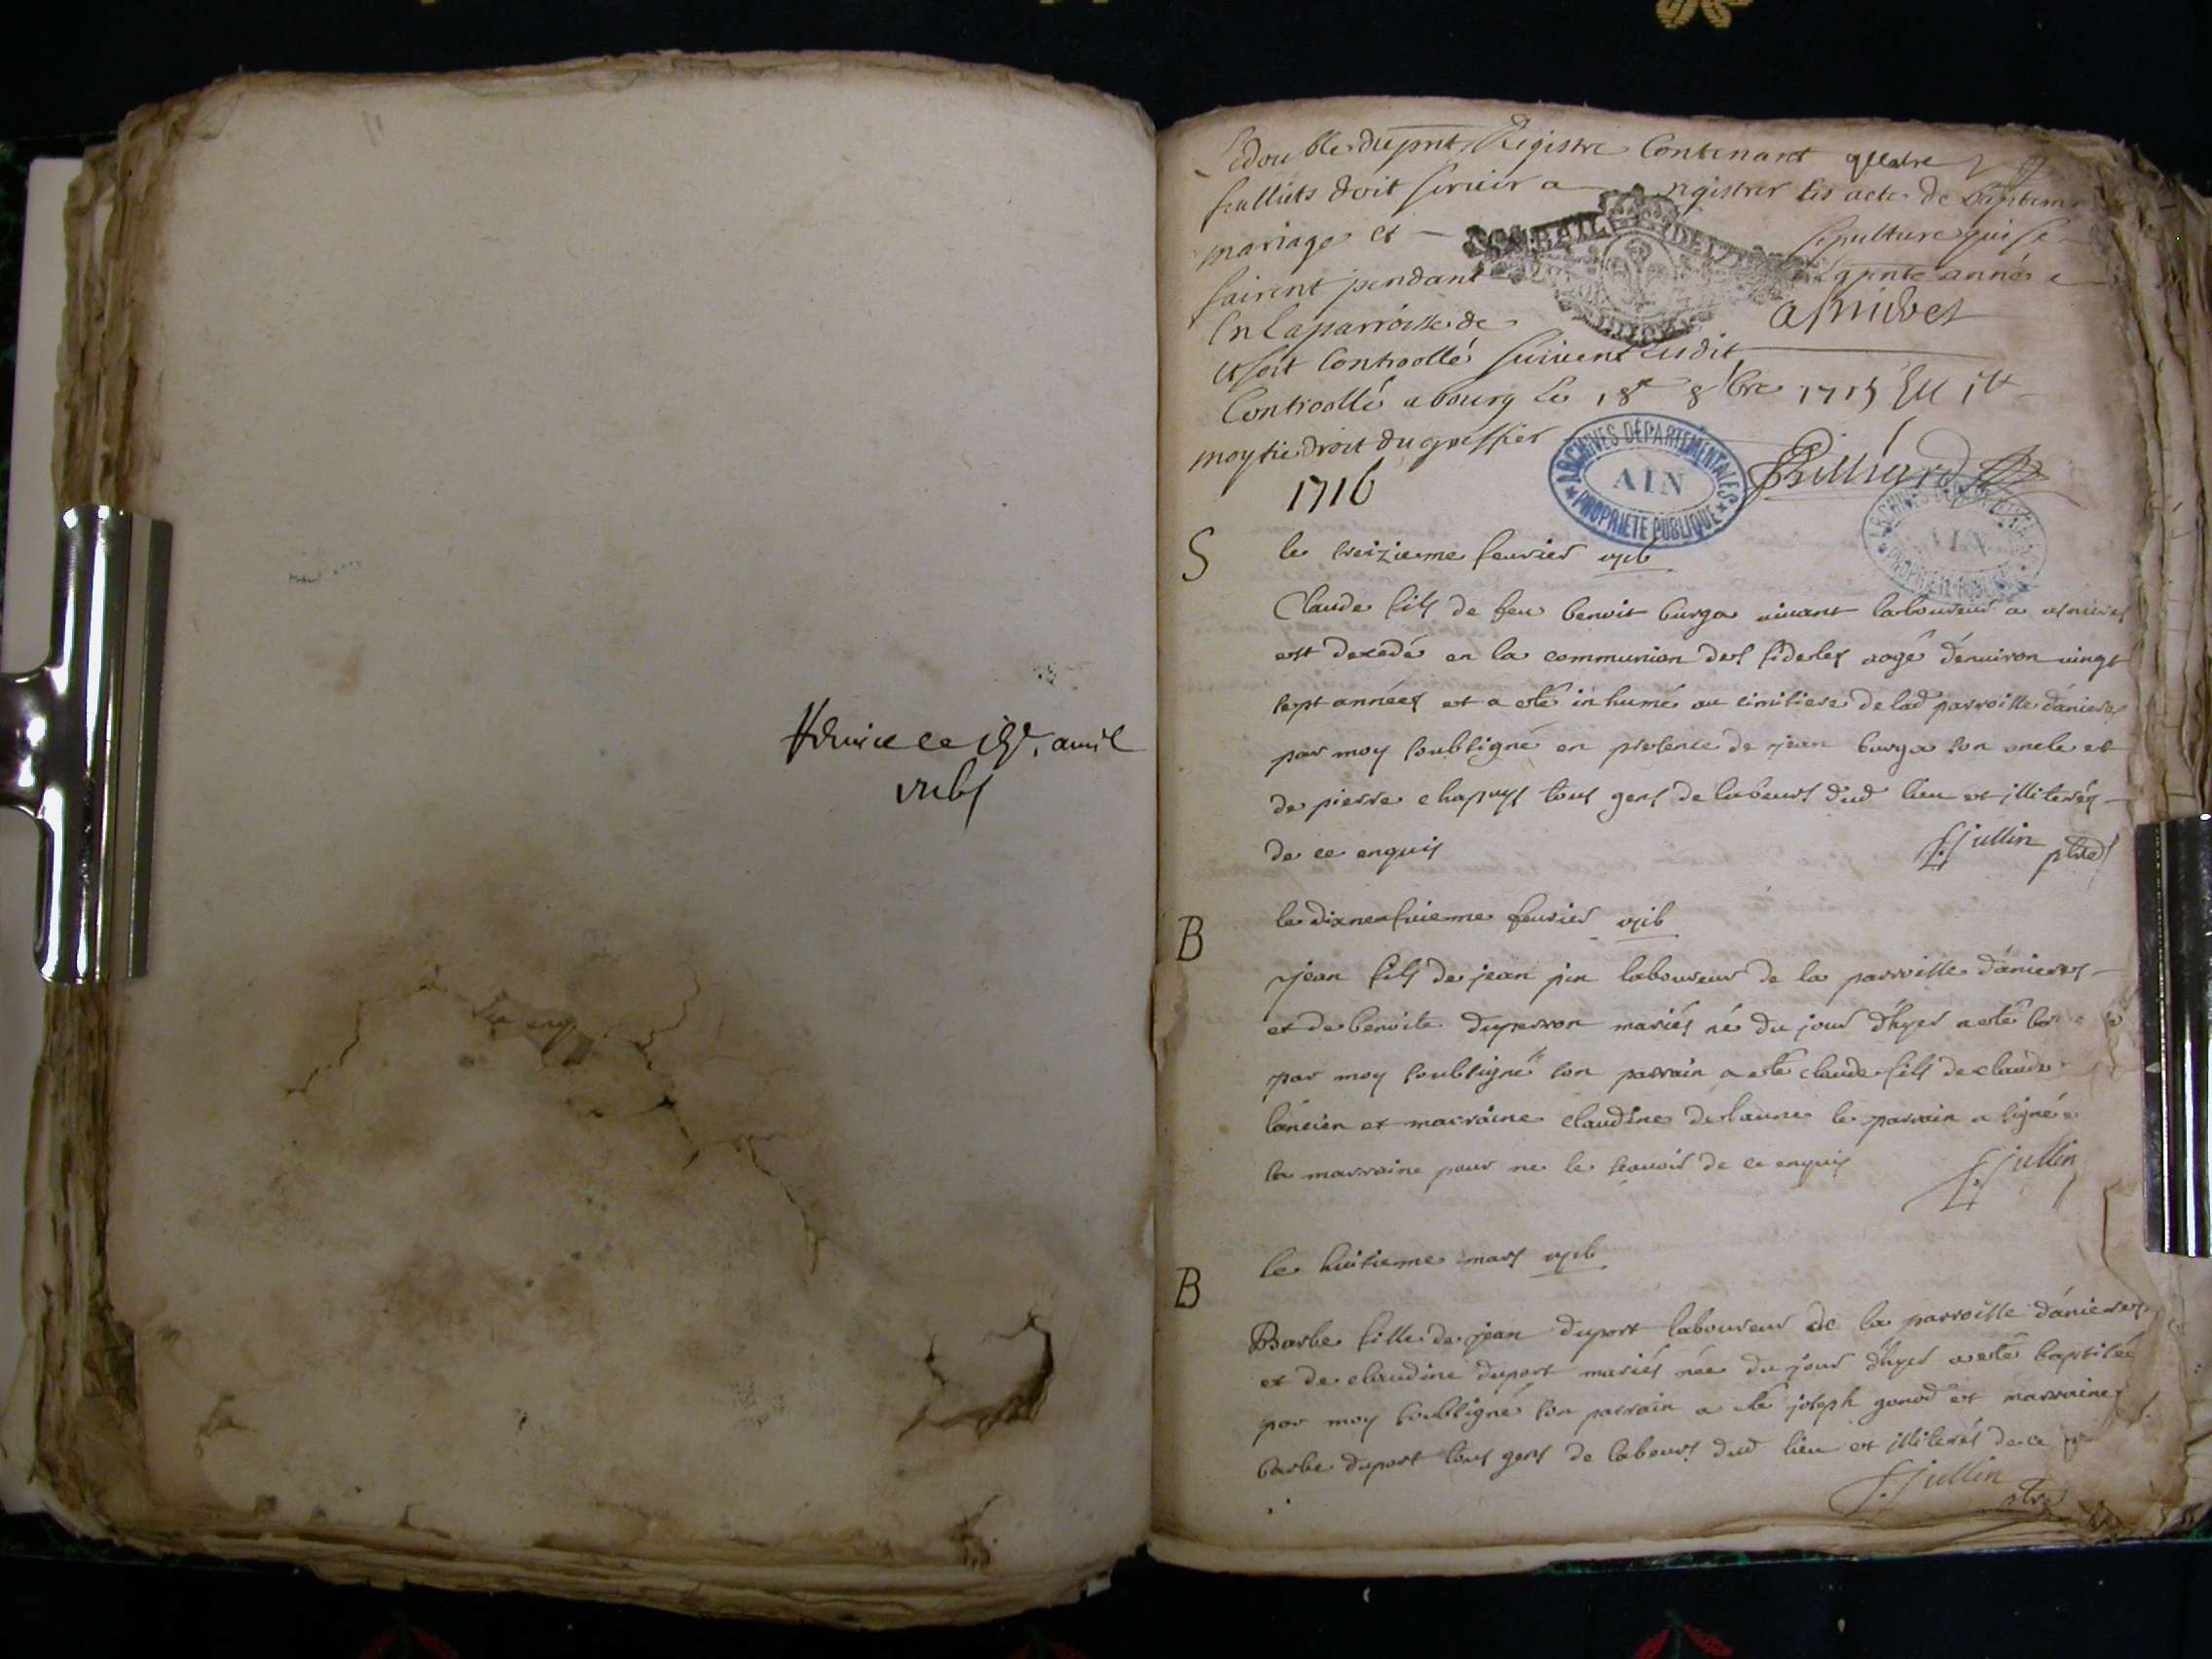 avril
Le double du pnt Registre Contenant quatre
feulliets doit servir a registrer les acte de baptem
mariage et sepulture qui se
fairont pendant la pnte année
En la parroisse de asnieres
et soit Controollé suivent Ledit
Controollé a bourg le 18e 8bre 1715
moytie droit du greffier
ARCHIVES DÉPARTEMENTALES
AIN
PROPRIÉTÉ PUBLIQUE
Billiard
ARCHIVES DÉPARTEMENTALES
AIN
PROPRIÉTÉ PUBLIQUE
1716
S
le treizieme fevrier
Claude fils de feu benoit burga vivant laboureur a asnieres
est decedé en la communion des fideles aagé d'environ vingt
sept années et a esté inhumé au cimitiere de lad parroisse d'anieres
par moy soubsigné en presence de jean burga son oncle et
de pierre chapuys tous gens de labeurs dud lieu et illiterés
de ce enquis
f. jullin ptre
B
le dixneufvieme fevrier
jean fils de jean pin laboureur de la parroisse d'anieres
et de benoite duperron mariés né du jour d'hyer a esté
par moy soubsigné son parrain a esté claude fils de claude
l'ancien et marraine claudine delaune le parrain a signé
la marraine pour ne le scavoir de ce enquis
f. jullin
B
le huitieme mars
Barbe fille de jean duport laboureur de la parroisse d'anieres
et de claudine duport mariés née du jour d'hyer a esté baptisée
par moy soubsigné son parrain a esté joseph gonod et marraine
barbe duport tous gens de labeurs dud lieu et illiterés de ce
f. jullin
ptre